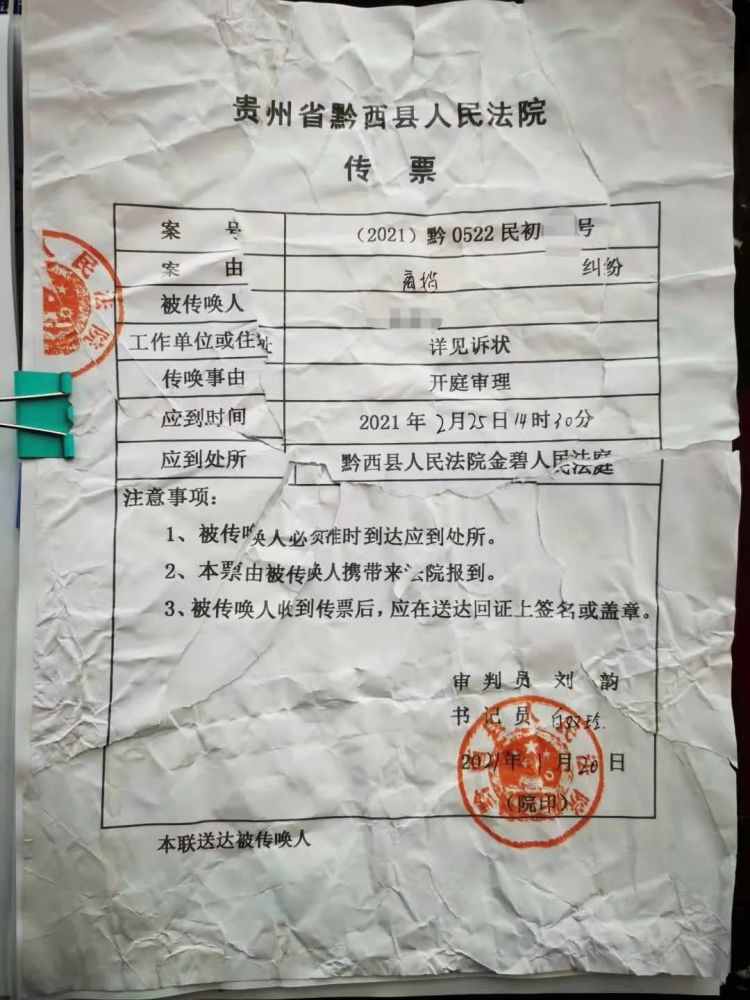 贵州省黔西县人民法院
传 票
案 号 （2021）黔 0522 民初 号
案 由 离婚 纠纷
被传唤人
工作单位或住址 详见诉状
传唤事由 开庭审理
应到时间 2021 年 2月25日14时30分
应到处所 黔西县人民法院金碧人民法庭
注意事项：
1、被传唤人必须准时到达应到处所。
2、本票由被传唤人携带来法院报到。
3、被传唤人收到传票后，应在送达回证上签名或盖章。
审 判 员 刘 韵
书 记 员
2021年 1 月 20 日
（院印）
本联送达被传唤人